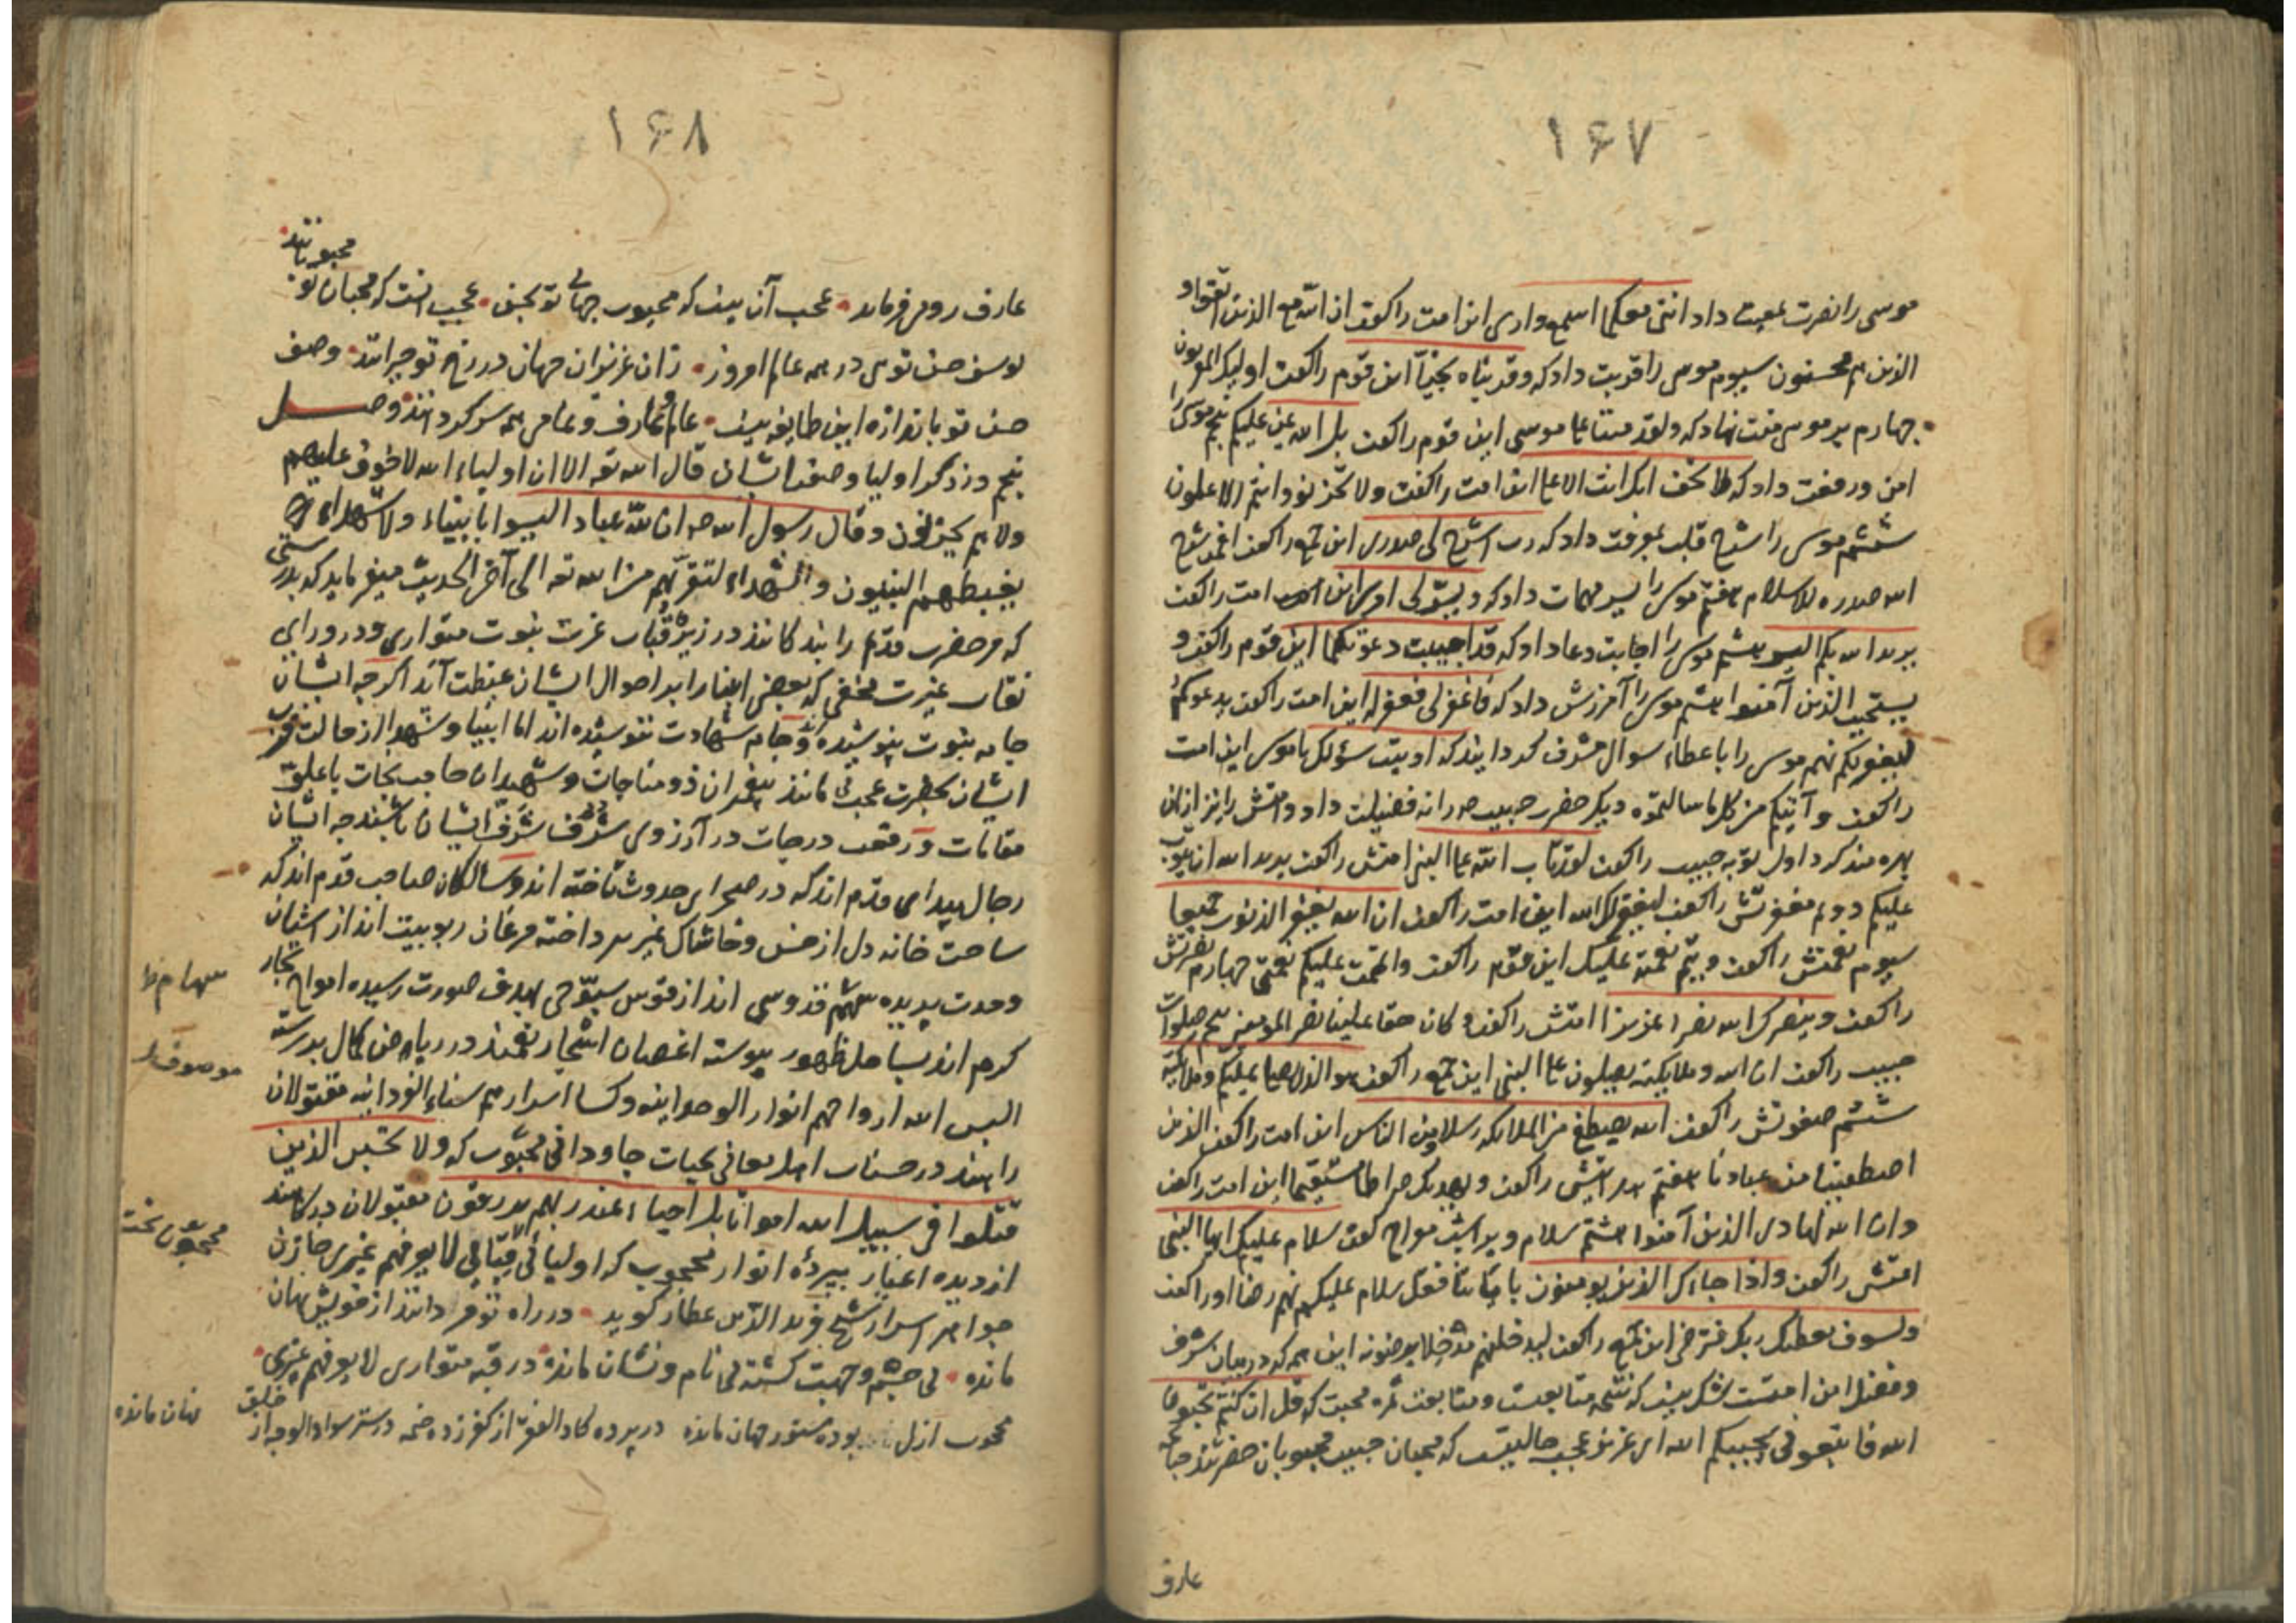 ١۶٧
موسی را نصرت معیت داد اننی معکما اسمع واری این امت را گفت ان الله مع الذین اتقوا و
الذین هم محسنون سیوم موسی را قربت داد که وقربناه نجیا این قوم را گفت اولیک المقربون
چهارم بر موسی منت نهاد که ولقد مننا علی موسی این قوم را گفت بل الله یمن علیکم پنجم موسی را
امن و رفعت داد که لا تخف انک انت الاعلی این امت را گفت ولا تحزنوا وانتم الاعلون
ششم موسی را شرح قلب معرفت داد که رب اشرح لی صدری این جمع را گفت افمن شرح
الله صدره للاسلام هفتم موسی را یسر مهمات داد که ویسر لی امری این امت را گفت
یرید الله بکم الیسر هشتم موسی را اجابت دعا داد که قد اجیبت دعوتکما این قوم را گفت و
یستجیب الذین آمنوا هشتم موسی را آمرزش داد که فاغفر لی فغفر له این امت را گفت یدعوکم
لیغفر لکم نهم موسی را باعطاء سوال مشرف گردانید که اوتیت سؤلک یا موسی این امت
را گفت وآتیکم من کل ما سالتموه دیگر حضرت حبیب را نه فضیلت داد و امتش را نیز ازان
بهره مند کرد اول توبه حبیب را گفت لقد تاب الله علی النبی امتش را گفت یرید الله ان یتوب
علیکم دوم مغفرتش را گفت لیغفر لک الله این امت را گفت ان الله یغفر الذنوب جمیعا
سیوم نعمتش را گفت ویتم نعمته علیک این قوم را گفت واتممت علیکم نعمتی چهارم نصرتش
را گفت وینصرک الله نصرا عزیزا امتش را گفت وکان حقا علینا نصر المومنین پنجم صلوات
حبیب را گفت ان الله وملایکته یصلون علی النبی این جمع را گفت هو الذی یصلی علیکم وملایکته
ششم صفوتش را گفت الله یصطفی من الملایکه رسلا ومن الناس این امت را گفت الذین
اصطفینا من عبادنا هفتم هدایتش را گفت ویهدیک صراطا مستقیما این امت را گفت
وان الله لهادی الذین آمنوا هشتم سلام ویرا شب معراج گفت سلام علیک ایها النبی
امتش را گفت واذا جاءک الذین یومنون بایاتنا فقل سلام علیکم نهم رضا او را گفت
ولسوف یعطیک ربک فترضی این جمع را گفت لیدخلنهم مدخلا یرضونه این همه که در بیان شرف
وفضل این امتست شک نیست که نتیجه متابعت است ومتابعت ثمره محبت که قل ان کنتم تحبون
الله فاتبعونی یحببکم الله ای عزیز عجب حالیست که محبان حبیب محبوبان حضرتند چنانچه
عارف
١۶٨
محبوبانند
عارف رومی فرماید عجب آن نیست که محبوب جهانی تو بحسن عجب اینست که محبان تو
یوسف حسن توی در همه عالم امروز زان عزیزان جهان در رخ تو حیرانند وصف
حسن تو باندازه این طایفه نیست عالم و عارف و عامی همه سرگردانند وصل
پنجم در ذکر اولیا وصفت ایشان قال الله تع الا ان اولیاء الله لا خوف علیهم
ولا هم یحزنون وقال رسول الله ص ان لله عباد الیسوا بانبیاء ولا شهداء
یغبطهم النبیون والشهداء لتقربهم من الله تع الی آخر الحدیث میفرماید که بدرستی
که مر حضرت قدم را بندگانند در زیر قباب عزت بنوت متواری ودر ورای
نقاب غیرت مخفی که بعضی انبیا را بر احوال ایشان غبطت آید اگرچه ایشان
جامه نبوت نپوشیده اند وجامه شهادت ننوشیده اند اما انبیا و شهدا از حالت قرب
ایشان بحضرت عجب مانند پیغمبران ذو مناجات وشهیدان صاحب نجات باعلو
مقامات ورفعت درجات در آرزوی شرف ایشان باشند چه ایشان
رجال بیدای قدم اند که در صحرای حدوث تاخته اند و سالکان صاحب قدم اند که
ساحت خانه دل از خس وخاشاک غیر پرداخته مرغان ربوبیت اند از اشیان
وحدت پریده سهم قدوسی اند از قوس سبوحی بهدف صورت رسیده امواج بحار
سهام ظ
کرم اند بساحل ظهور پیوسته اغصان اشجار نعمند در ریاض کمال بررسته
موصوف
البس الله ارواحهم انوار الوحدانیه وکسا اسرارهم سناء الفردانیه مقتولان
را هند در حساب اهل معانی بحیات جاودانی محبوب که ولا تحسبن الذین
قتلوا فی سبیل الله امواتا بل احیاء عند ربهم یرزقون مقبولان درگاهند
محجوبون تحت
از دیده اغیار بپرده انوار محجوب که اولیائی تحت قبابی لا یعرفهم غیری جازن
جواهر اسرار شیخ فرید الدین عطار گوید در راه تو مردانند از خویش نهان
مانده بی جسم وجهت گشته بی نام ونشان مانده در قبه متواری لا یعرفهم غیری
محبوب ازل بوده مستور جهان مانده در پرده کاد الفقر از کفر زده خیمه در ستر سواد الوجه از خلق
نهان مانده